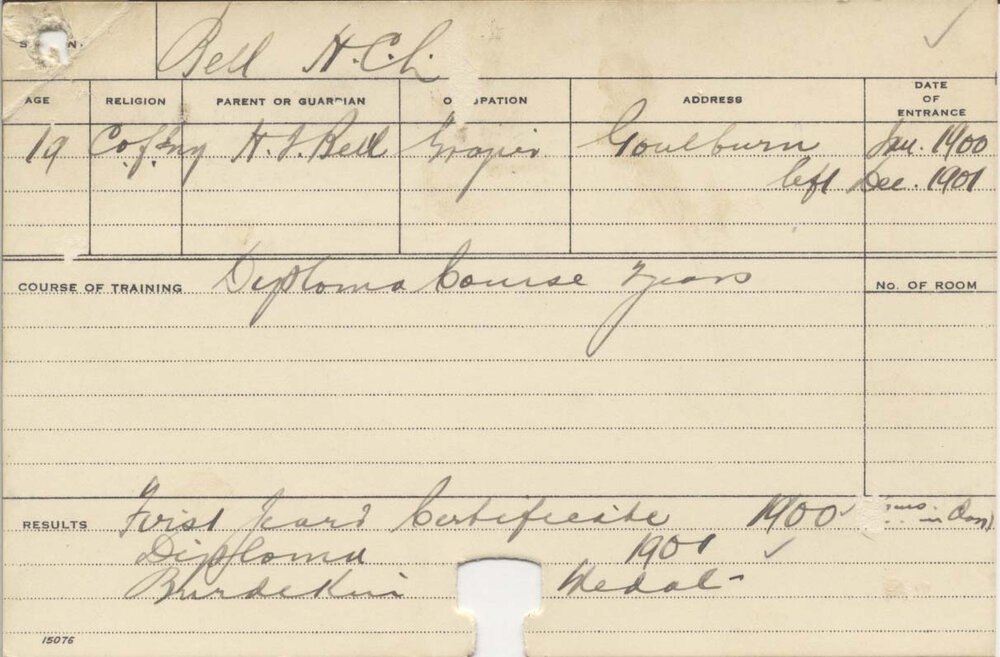 Bell H.C.L.
AGE RELIGION PARENT OR GUARDIAN OCCUPATION ADDRESS DATE OF ENTRANCE
19 C of Eng H. J. Bell Grazier Goulburn Jan. 1900
left Dec. 1901
COURSE OF TRAINING Diploma Course 2 years No. OF ROOM
RESULTS First Years Certificate 1900
Diploma 1901 ✓
Burdekin Medal -
15076